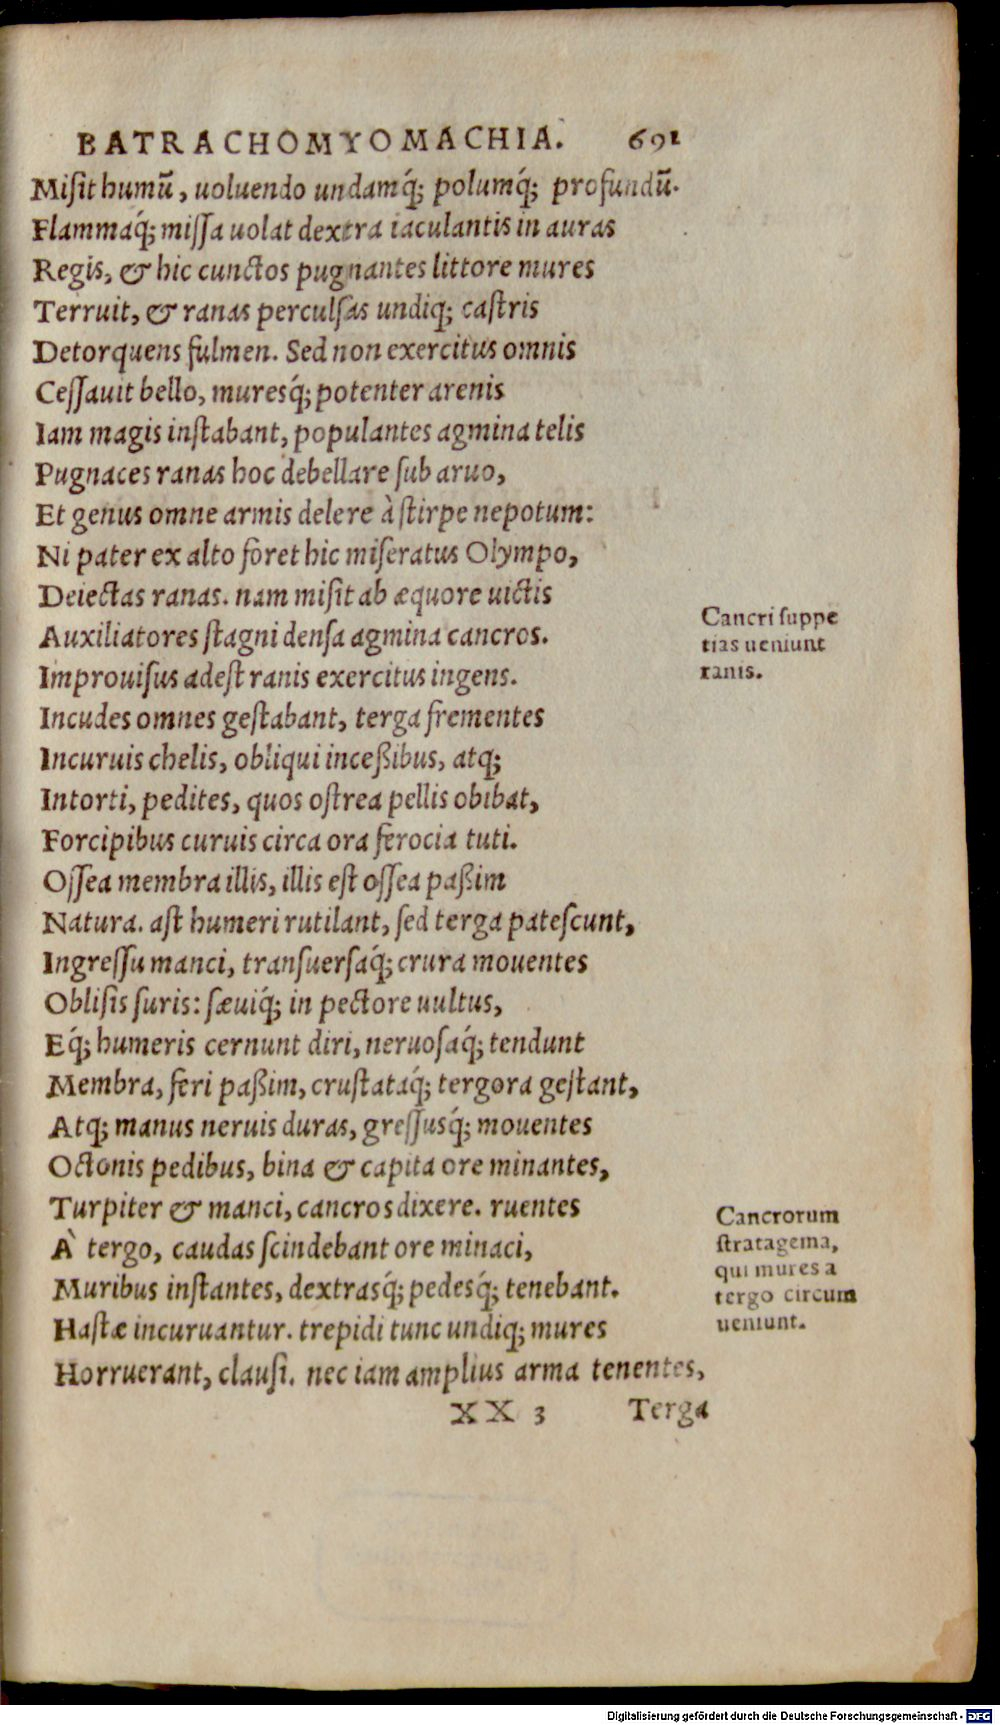 BATRACHOMYOMACHIA. 691
Misit humū, uoluendo undamq́; polumq́; profundū.
Flammaq́; missa uolat dextra iaculantis in auras
Regis, & hic cunctos pugnantes littore mures
Terruit, & ranas perculsas undiq; castris
Detorquens fulmen. Sed non exercitus omnis
Cessauit bello, muresq́; potenter arenis
Iam magis instabant, populantes agmina telis
Pugnaces ranas hoc debellare sub aruo,
Et genus omne armis delere à stirpe nepotum:
Ni pater ex alto foret hic miseratus Olympo,
Deiectas ranas. nam misit ab æquore uictis
Auxiliatores stagni densa agmina cancros.
Improuisus adest ranis exercitus ingens.
Incudes omnes gestabant, terga frementes
Incuruis chelis, obliqui inceßibus, atq;
Intorti, pedites, quos ostrea pellis obibat,
Forcipibus curuis circa ora ferocia tuti.
Ossea membra illis, illis est ossea paßim
Natura. ast humeri rutilant, sed terga patescunt,
Ingressu manci, transuersaq́; crura mouentes
Oblisis suris: sæuiq́; in pectore uultus,
Eq́; humeris cernunt diri, neruosaq́; tendunt
Membra, feri paßim, crustataq́; tergora gestant,
Atq; manus neruis duras, gressusq́; mouentes
Octonis pedibus, bina & capita ore minantes,
Turpiter & manci, cancros dixere. ruentes
À tergo, caudas scindebant ore minaci,
Muribus instantes, dextrasq́; pedesq́; tenebant.
Hastæ incuruantur. trepidi tunc undiq; mures
Horruerant, clausi. nec iam amplius arma tenentes,
XX 3 Terga
Cancri suppe
tias ueniunt
ranis.
Cancrorum
stratagema,
qui mures a
tergo circum
ueniunt.
Digitalisierung gefördert durch die Deutsche Forschungsgemeinschaft - DFG